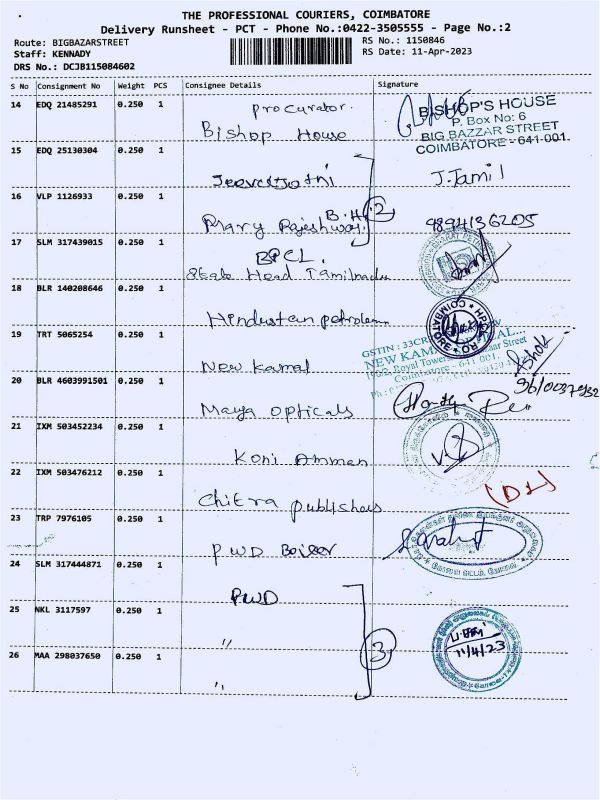 THE PROFESSIONAL COURIERS, COIMBATORE
Delivery Runsheet - PCT - Phone No.:0422-3505555 - Page No.:2
Route: BIGBAZARSTREET RS No.: 1150846
Staff: KENNADY RS Date: 11-Apr-2023
DRS No.: DCJB115084602
S No Consignment No Weight PCS Consignee Details Signature
14 EDQ 21485291 0.250 1 procurator.
Bishop House
BISHOP'S HOUSE
P. Box No: 6
BIG BAZZAR STREET
COIMBATORE - 641 001.
15 EDQ 25130304 0.250 1
J.Tamil
16 VLP 1126933 0.250 1
B.H 2
Mary Rajeshwari 9894136205
17 SLM 317439015 0.250 1 BPCL.
State Head Tamilnadu
18 BLR 140208646 0.250 1
Hindustan petroleum
19 TRT 5065254 0.250 1
New Kamal
GSTIN : 33CR
NEW KAMAL
Royal Tower
Street
Coimbatore - 641 001.
Ashok
20 BLR 4603991501 0.250 1
Maya opticals
21 IXM 503452234 0.250 1
Koni Amman
22 IXM 503476212 0.250 1
Chitra publishers
(DL)
23 TRP 7976105 0.250 1
PWD Boiler
24 SLM 317444871 0.250 1
PWD
25 NKL 3117597 0.250 1
〃
3
11/4/23
26 MAA 298037650 0.250 1
〃